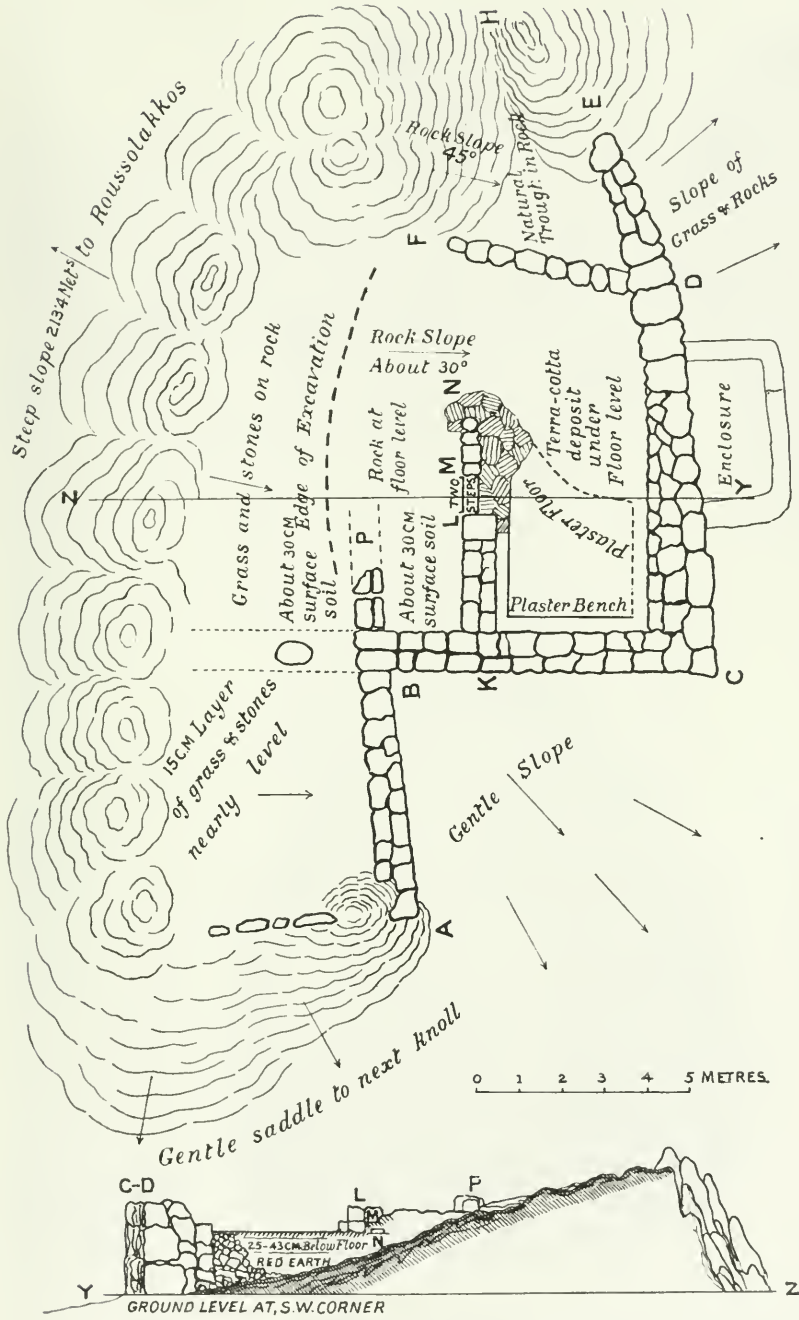 H
Steep slope 213·4 Metˢ to Roussolakkos
Rock Slope
45°
E
Natural
Trough in Rock
Slope of
Grass & Rocks
F
D
Z
Grass and stones on rock
Edge of Excavation
Rock Slope
About 30°
N
Rock at
floor level
M
TWO
STEPS
L
Terra-cotta
deposit
under
Floor level
Enclosure
Y
About 30CM
surface
soil
P
About 30CM
surface soil
Plaster Floor
Plaster Bench
B
K
C
15 C.M Layer
of grass & stones
nearly level
Gentle Slope
A
Gentle saddle to next knoll
0 1 2 3 4 5 METRES.
C-D
L
M
N
P
25-43CM.Below Floor
RED EARTH
Y
Z
GROUND LEVEL AT, S.W. CORNER